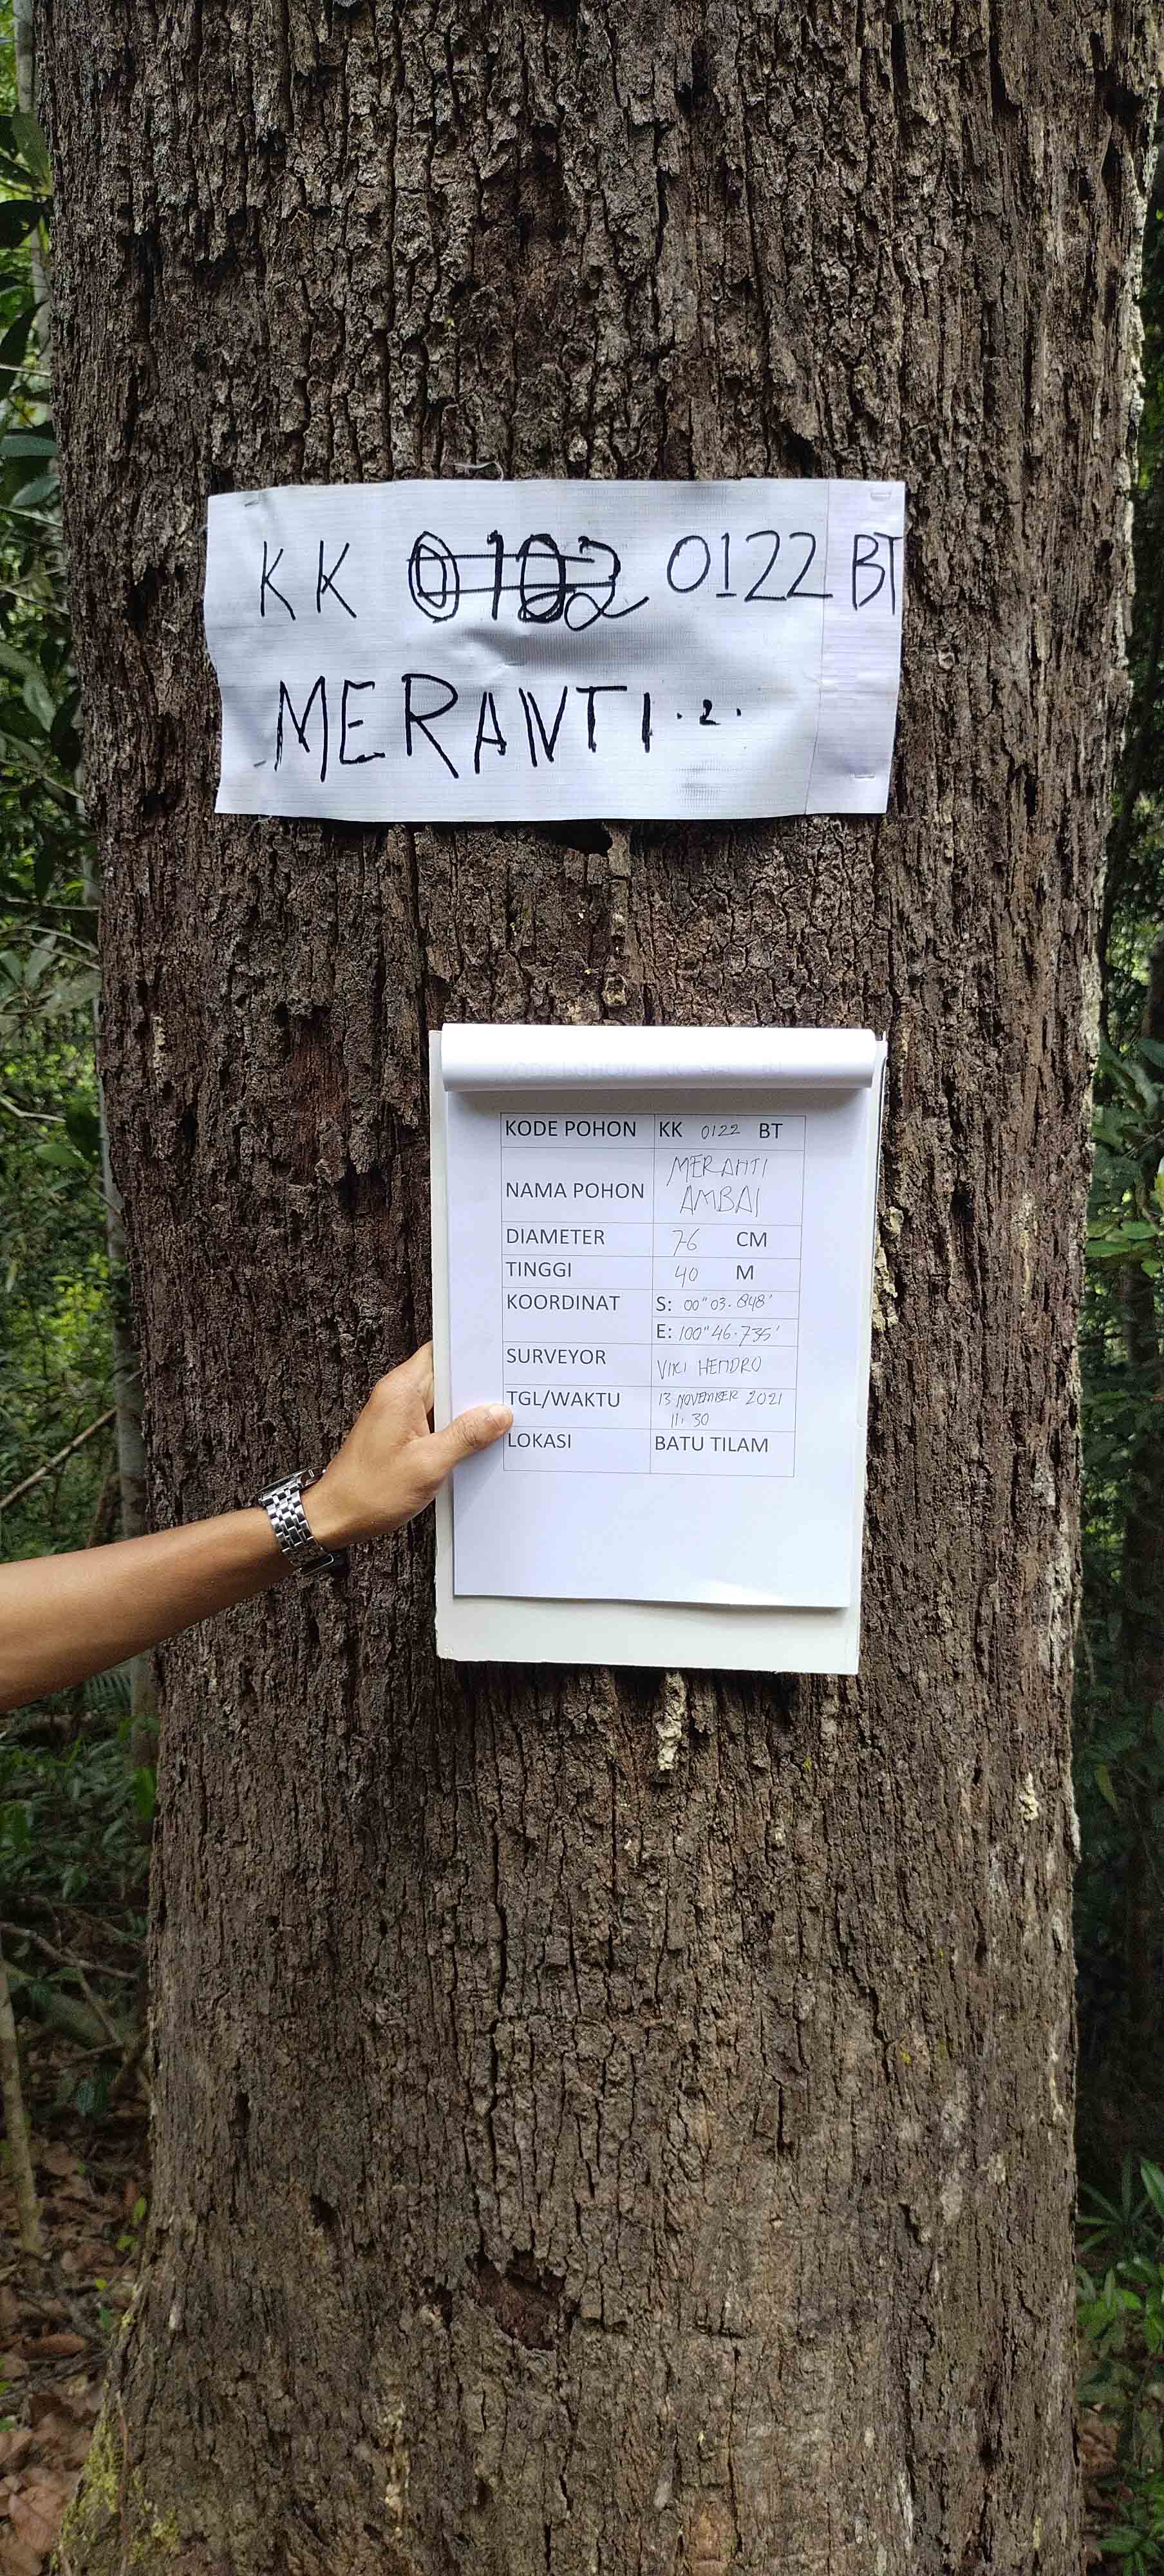 KK 0122 BT
MERANTI . 2 .
KODE POHON KK 0122 BT
NAMA POHON MERANTI AMBAI
DIAMETER 76 CM
TINGGI 40 M
KOORDINAT S: 00" 03. 848'
E: 100" 46. 735'
SURVEYOR VIKI HENDRO
TGL/WAKTU 13 NOVEMBER 2021
11. 30
LOKASI BATU TILAM